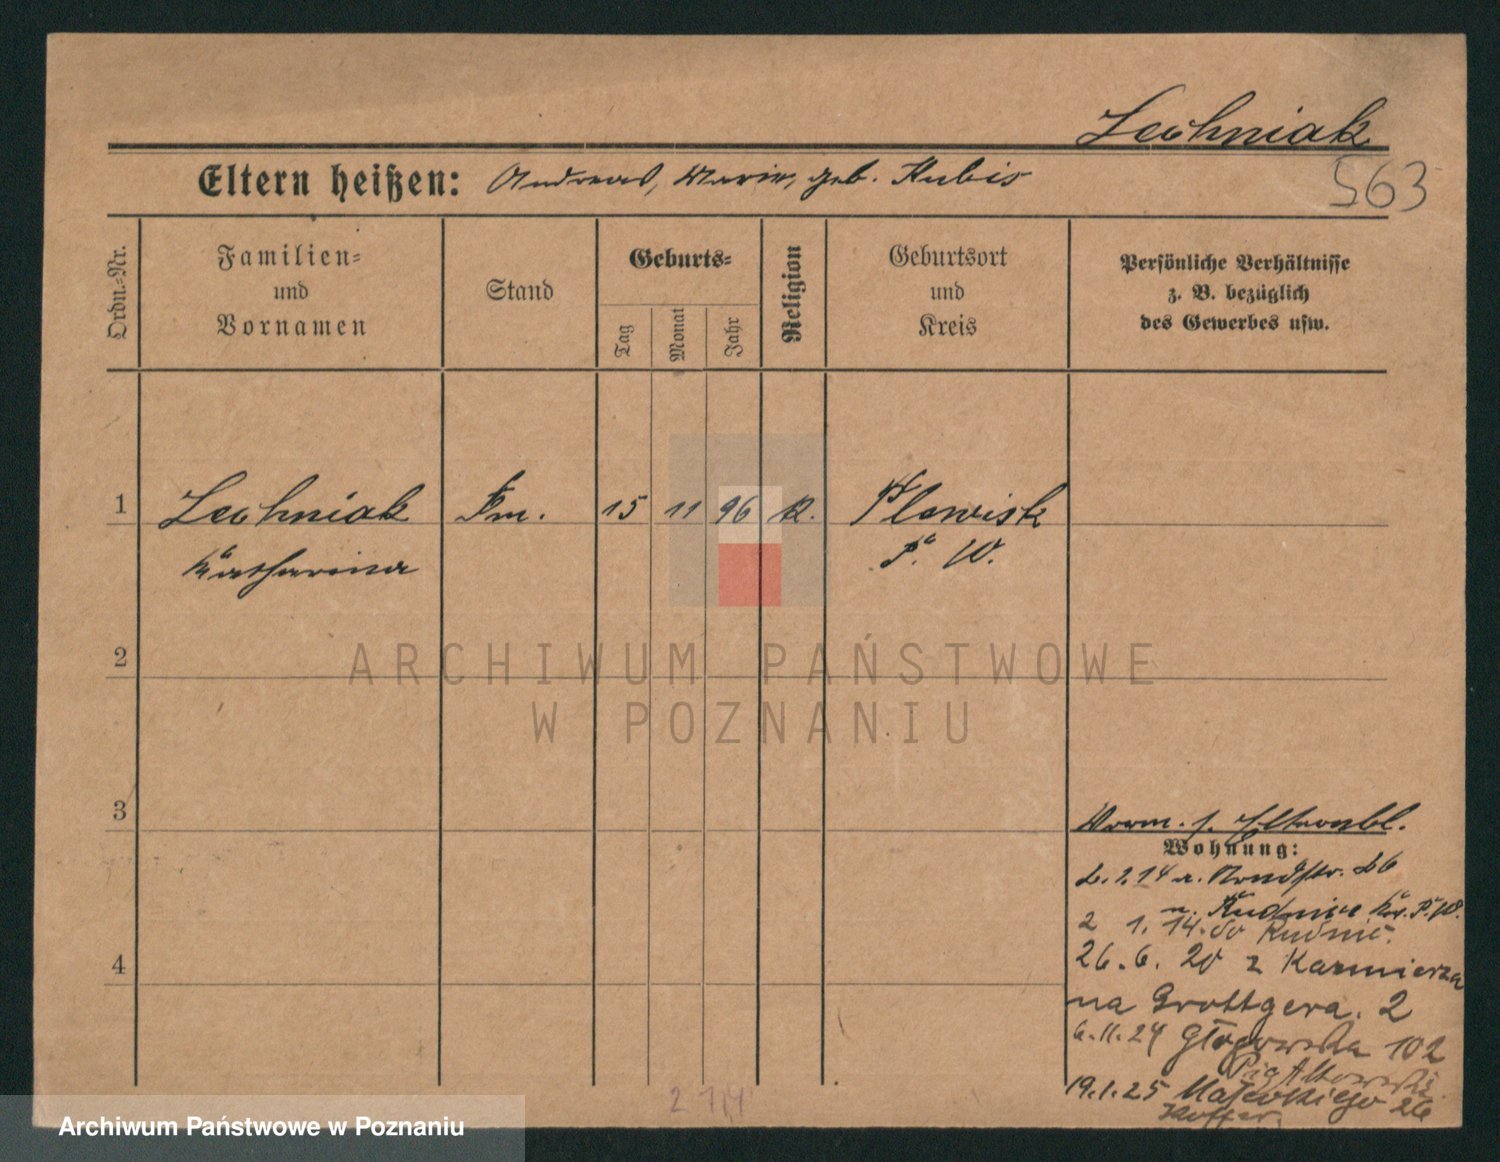 Lechniak
Eltern heißen: Andreas, Marie, geb. Kubis
563
Ordn.-Nr.
Familien-
und
Vornamen
Stand
Geburts-
Tag
Monat
Jahr
Religion
Geburtsort
und
Kreis
Persönliche Verhältnisse
z. B. bezüglich
des Gewerbes usw.
1 Lechniak 15 11 96 K. Plewisk
Katharina P. W.
2
ARCHIWUM PAŃSTWOWE
W POZNANIU
3
Vorm. s. Elternbl.
Wohnung:
2.1.14 a. Nordstr. 26
n. Rudnicze Kr. P. W.
2 1. 14. do Rudnic.
4
26.6. 20 z Kazmierza
na Grottgera. 2
6.11.24 Głogowska 102
19.1.25 Matejkiego 26
2 1 14
Archiwum Państwowe w Poznaniu